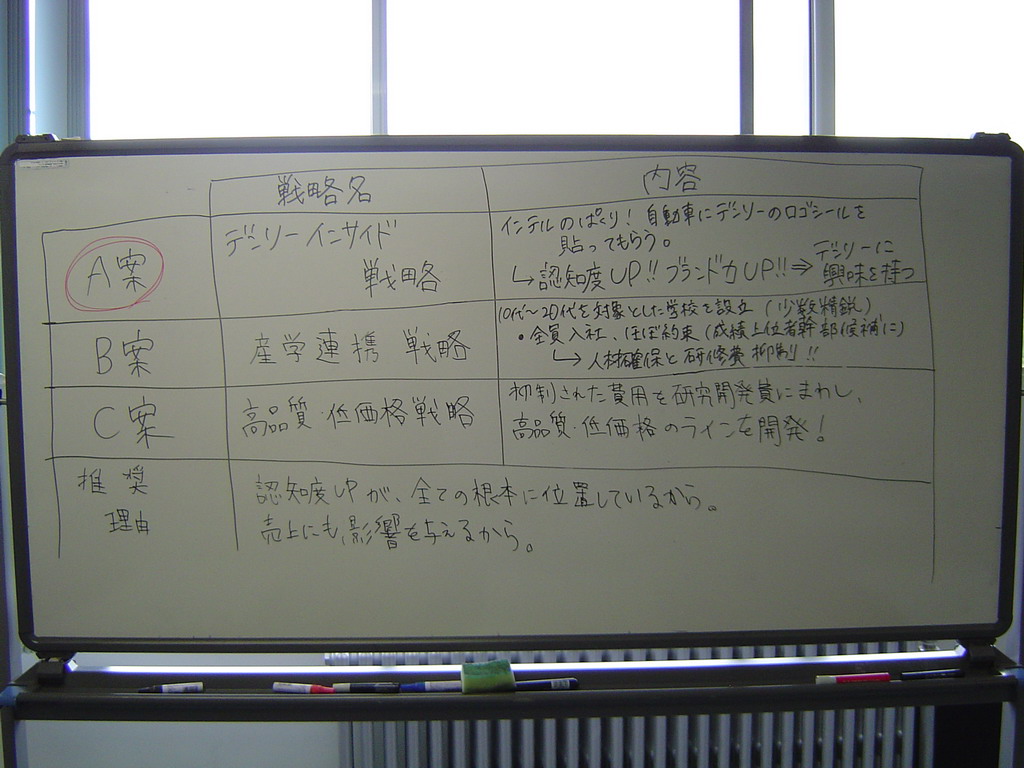 戦略名 内容
A案 デンソーインサイド
戦略
インテルのぱくり！ 自動車にデンソーのロゴシールを
貼ってもらう。
↳認知度UP!! ブランド力UP!!⇒ デンソーに
興味を持つ
B案 産学連携 戦略
10代～20代を対象とした学校を設立 (少数精鋭)
・全員入社、ほぼ約束(成績上位者幹部候補に)
↳人材確保と研修費抑制!!
C案 高品質・低価格戦略
抑制された費用を研究開発費にまわし、
高品質・低価格のラインを開発！
推奨
理由
認知度UPが、全ての根本に位置しているから。
売上にも影響を与えるから。